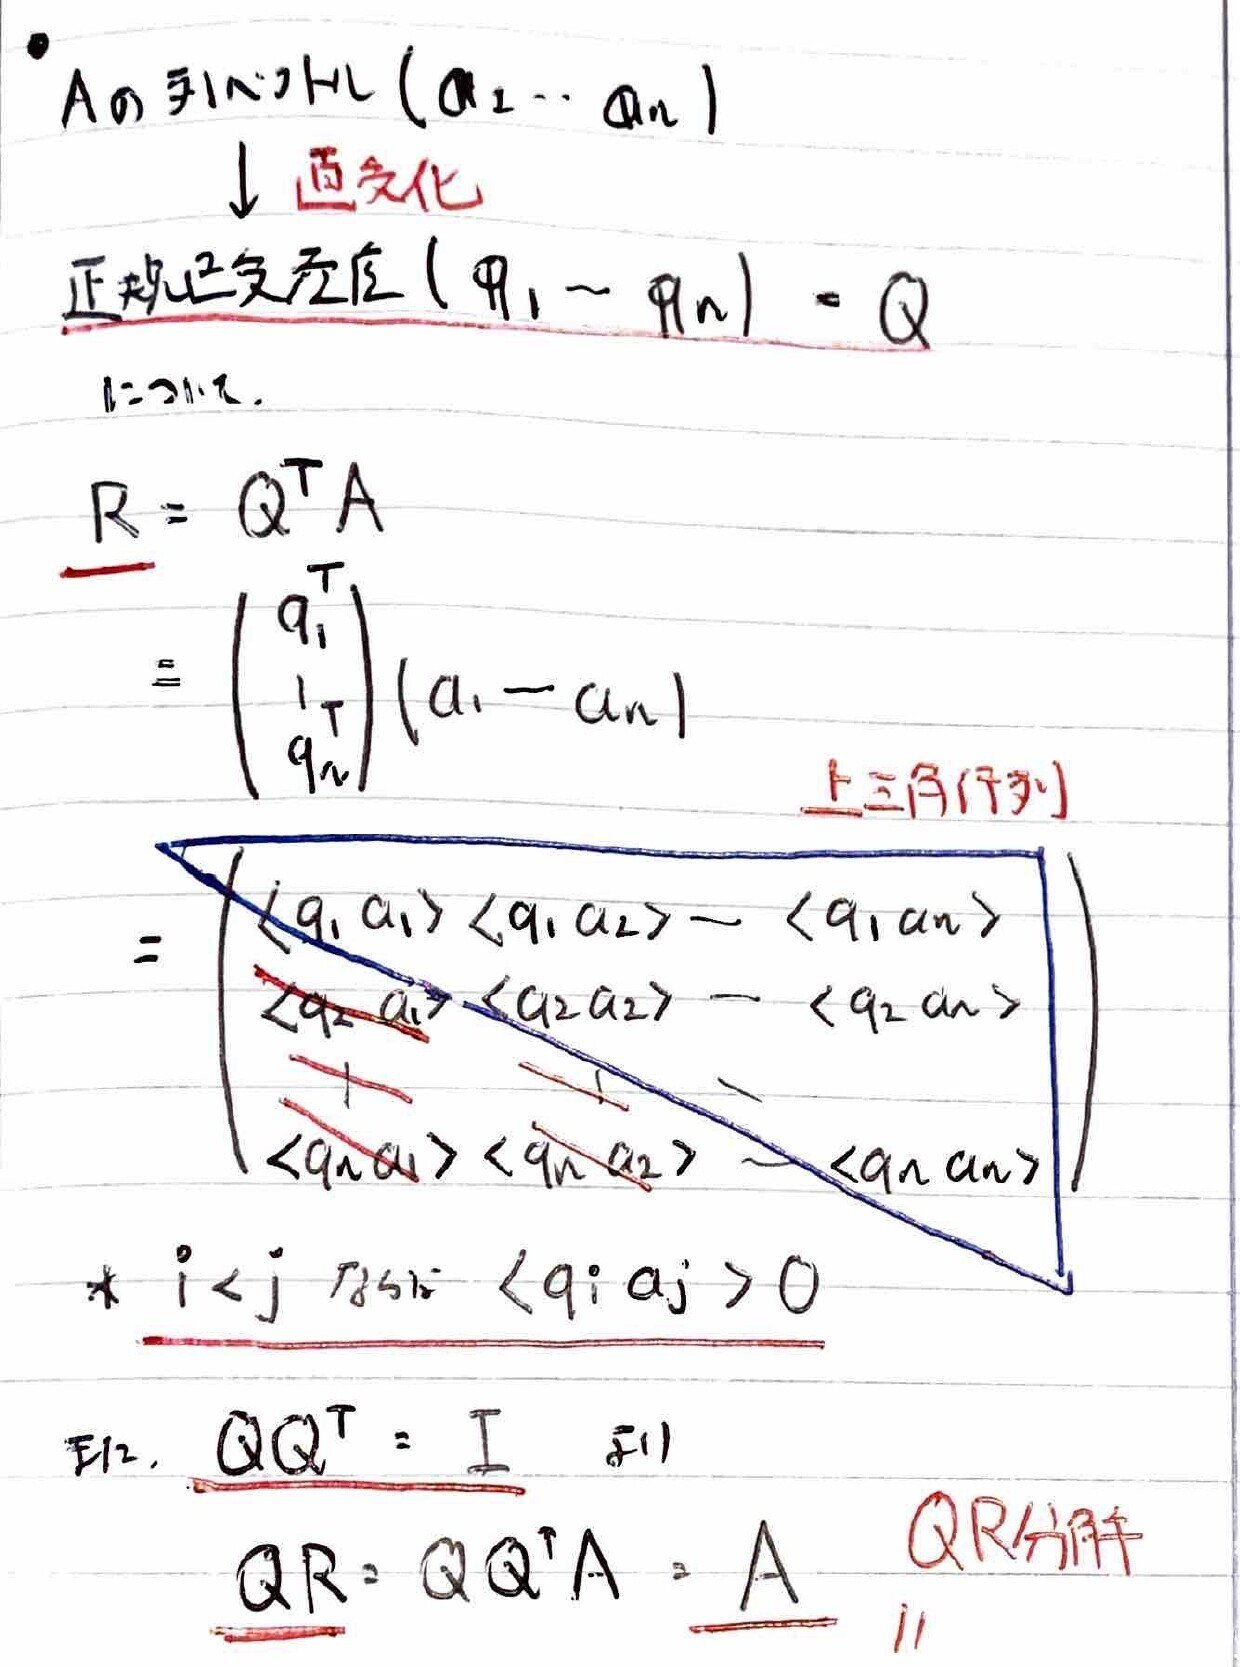 Aの列ベクトル(a₁‥aₙ)
↓直交化
正規直交基底(q₁〜qₙ) = Q
について、
R = QᵀA
= (q₁ᵀ ¦ qₙᵀ)(a₁ー aₙ)
上三角行列
= <q₁ a₁> <q₁ a₂> ー <q₁ aₙ>
<q₂ a₁> <q₂ a₂> ー <q₂ aₙ>
<qₙ a₁> <qₙ a₂> ー <qₙ aₙ>
* i < j ならば <qᵢ aⱼ> 0
また、QQᵀ = I より
QR = QQᵀA = A
QR分解